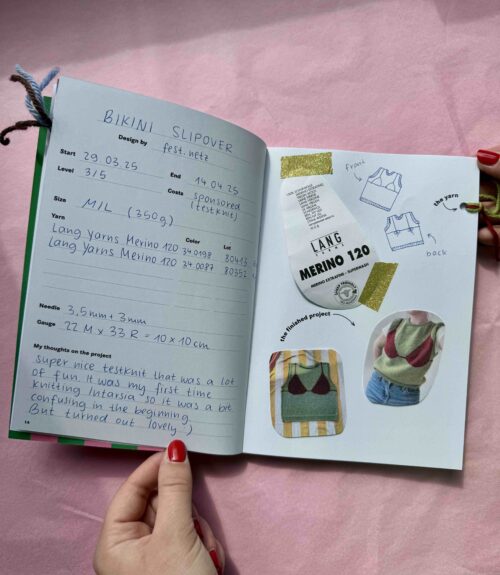 BIKINI SLIPOVER
Design by fest.netz
Start 29.03.25 End 14.04.25
Level 3/5 Costs sponsored
(testknit)
Size M/L (350g)
Yarn Color Lot
Lang Yarns Merino 120 34.0198 80413
Lang Yarns Merino 120 34.0087 80352
Needle 3,5mm + 3mm
Gauge 22 M x 33 R = 10 x 10 cm
My thoughts on the project
super nice testknit that was a lot
of fun. It was my first time
knitting Intarsia so it was a bit
confusing in the beginning.
But turned out lovely :)
14
front
back
the yarn
LANG
YARNS
MERINO 120
MERINO EXTRAFINE • SUPERWASH
the finished project